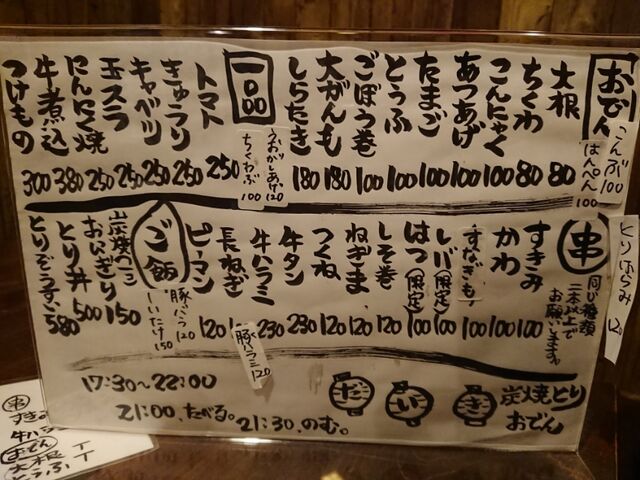 おでん
こんぶ 100
はんぺん 100
大根 80
ちくわ 80
こんにゃく 100
あつあげ 100
たまご 100
とうふ 100
ごぼう巻 100
大がんも 180
しらたき 180
一品
120
ちくわぶ 100
トマト 250
きゅうり 250
キャベツ 250
玉スラ 250
にんにく焼 250
牛煮込 380
つけもの 300
とりはらみ 120
串
同じ種類
二本以上で
お願いします。
すきみ 100
かわ 100
すなぎも 100
レバ(限定) 100
はつ(限定) 100
しそ巻 120
ねぎま 120
つくね 120
牛タン 230
牛ハラミ 230
豚ハラミ 120
長ねぎ
ピーマン 120
豚バラ 120
しいたけ 150
ご飯
炭焼
おにぎり 150
とり丼 500
とりぞうすい 580
17:30~22:00
21:00、たべる。21:30、のむ。
だいき
炭焼とり
おでん
串
すきみ
牛ハラミ
おでん
大根 T
とうふ T